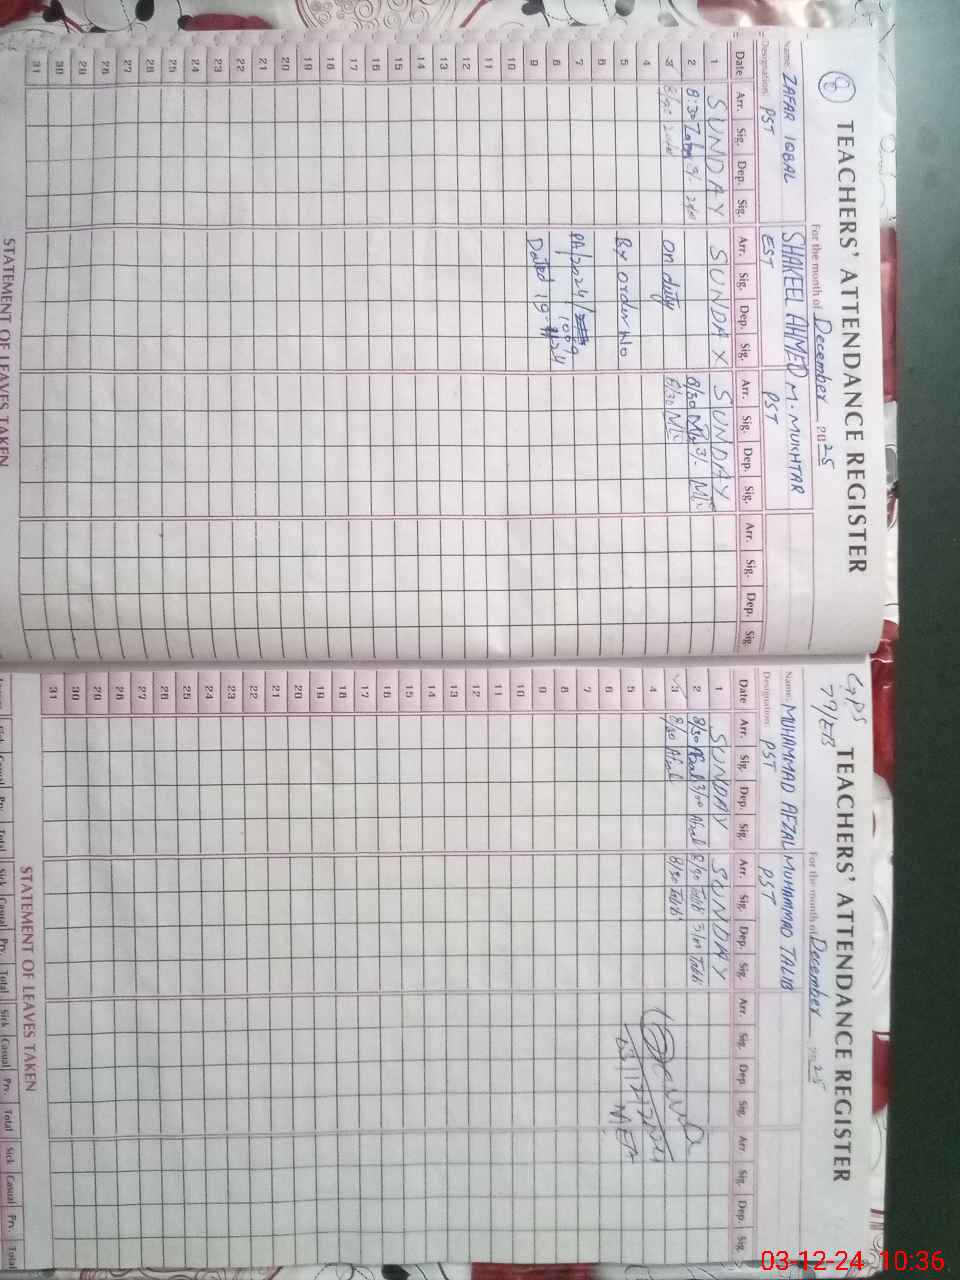 8
TEACHERS' ATTENDANCE REGISTER
For the month of December 2025
Name: ZAFAR IQBAL SHAKEEL AHMED M. MUKHTAR
Designation: PST EST PST
Date Arr. Sig. Dep. Sig. Arr. Sig. Dep. Sig. Arr. Sig. Dep. Sig. Arr. Sig. Dep. Sig.
1 SUNDAY SUNDAY SUNDAY
2 8:30 Zafar 3/- 8/30 3/-
3 on duty 8/30
4
5 By order No
6
7 PA/2024/
1009
8
9 Dated 19-11-24
10
11
12
13
14
15
16
17
18
19
20
21
22
23
24
25
26
27
28
29
30
31
STATEMENT OF LEAVES TAKEN
GPS
79/EB
TEACHERS' ATTENDANCE REGISTER
For the month of December 2025
Name: MUHAMMAD AFZAL MUHAMMAD TALIB
Designation: PST PST
Date Arr. Sig. Dep. Sig. Arr. Sig. Dep. Sig. Arr. Sig. Dep. Sig. Arr. Sig. Dep. Sig.
1 SUNDAY SUNDAY
2 8/30 Afzal 3/00 Afzal 8/30 Talib 3/00 Talib
3 8/30 Afzal 8/30 Talib
4
5 03/12/2024
6 MEA
7
8
9
10
11
12
13
14
15
16
17
18
19
20
21
22
23
24
25
26
27
28
29
30
31
STATEMENT OF LEAVES TAKEN
Sick Casual Prv. Total Sick Casual Prv. Total Sick Casual Prv. Total Sick Casual Prv. Total
03-12-24 10:36